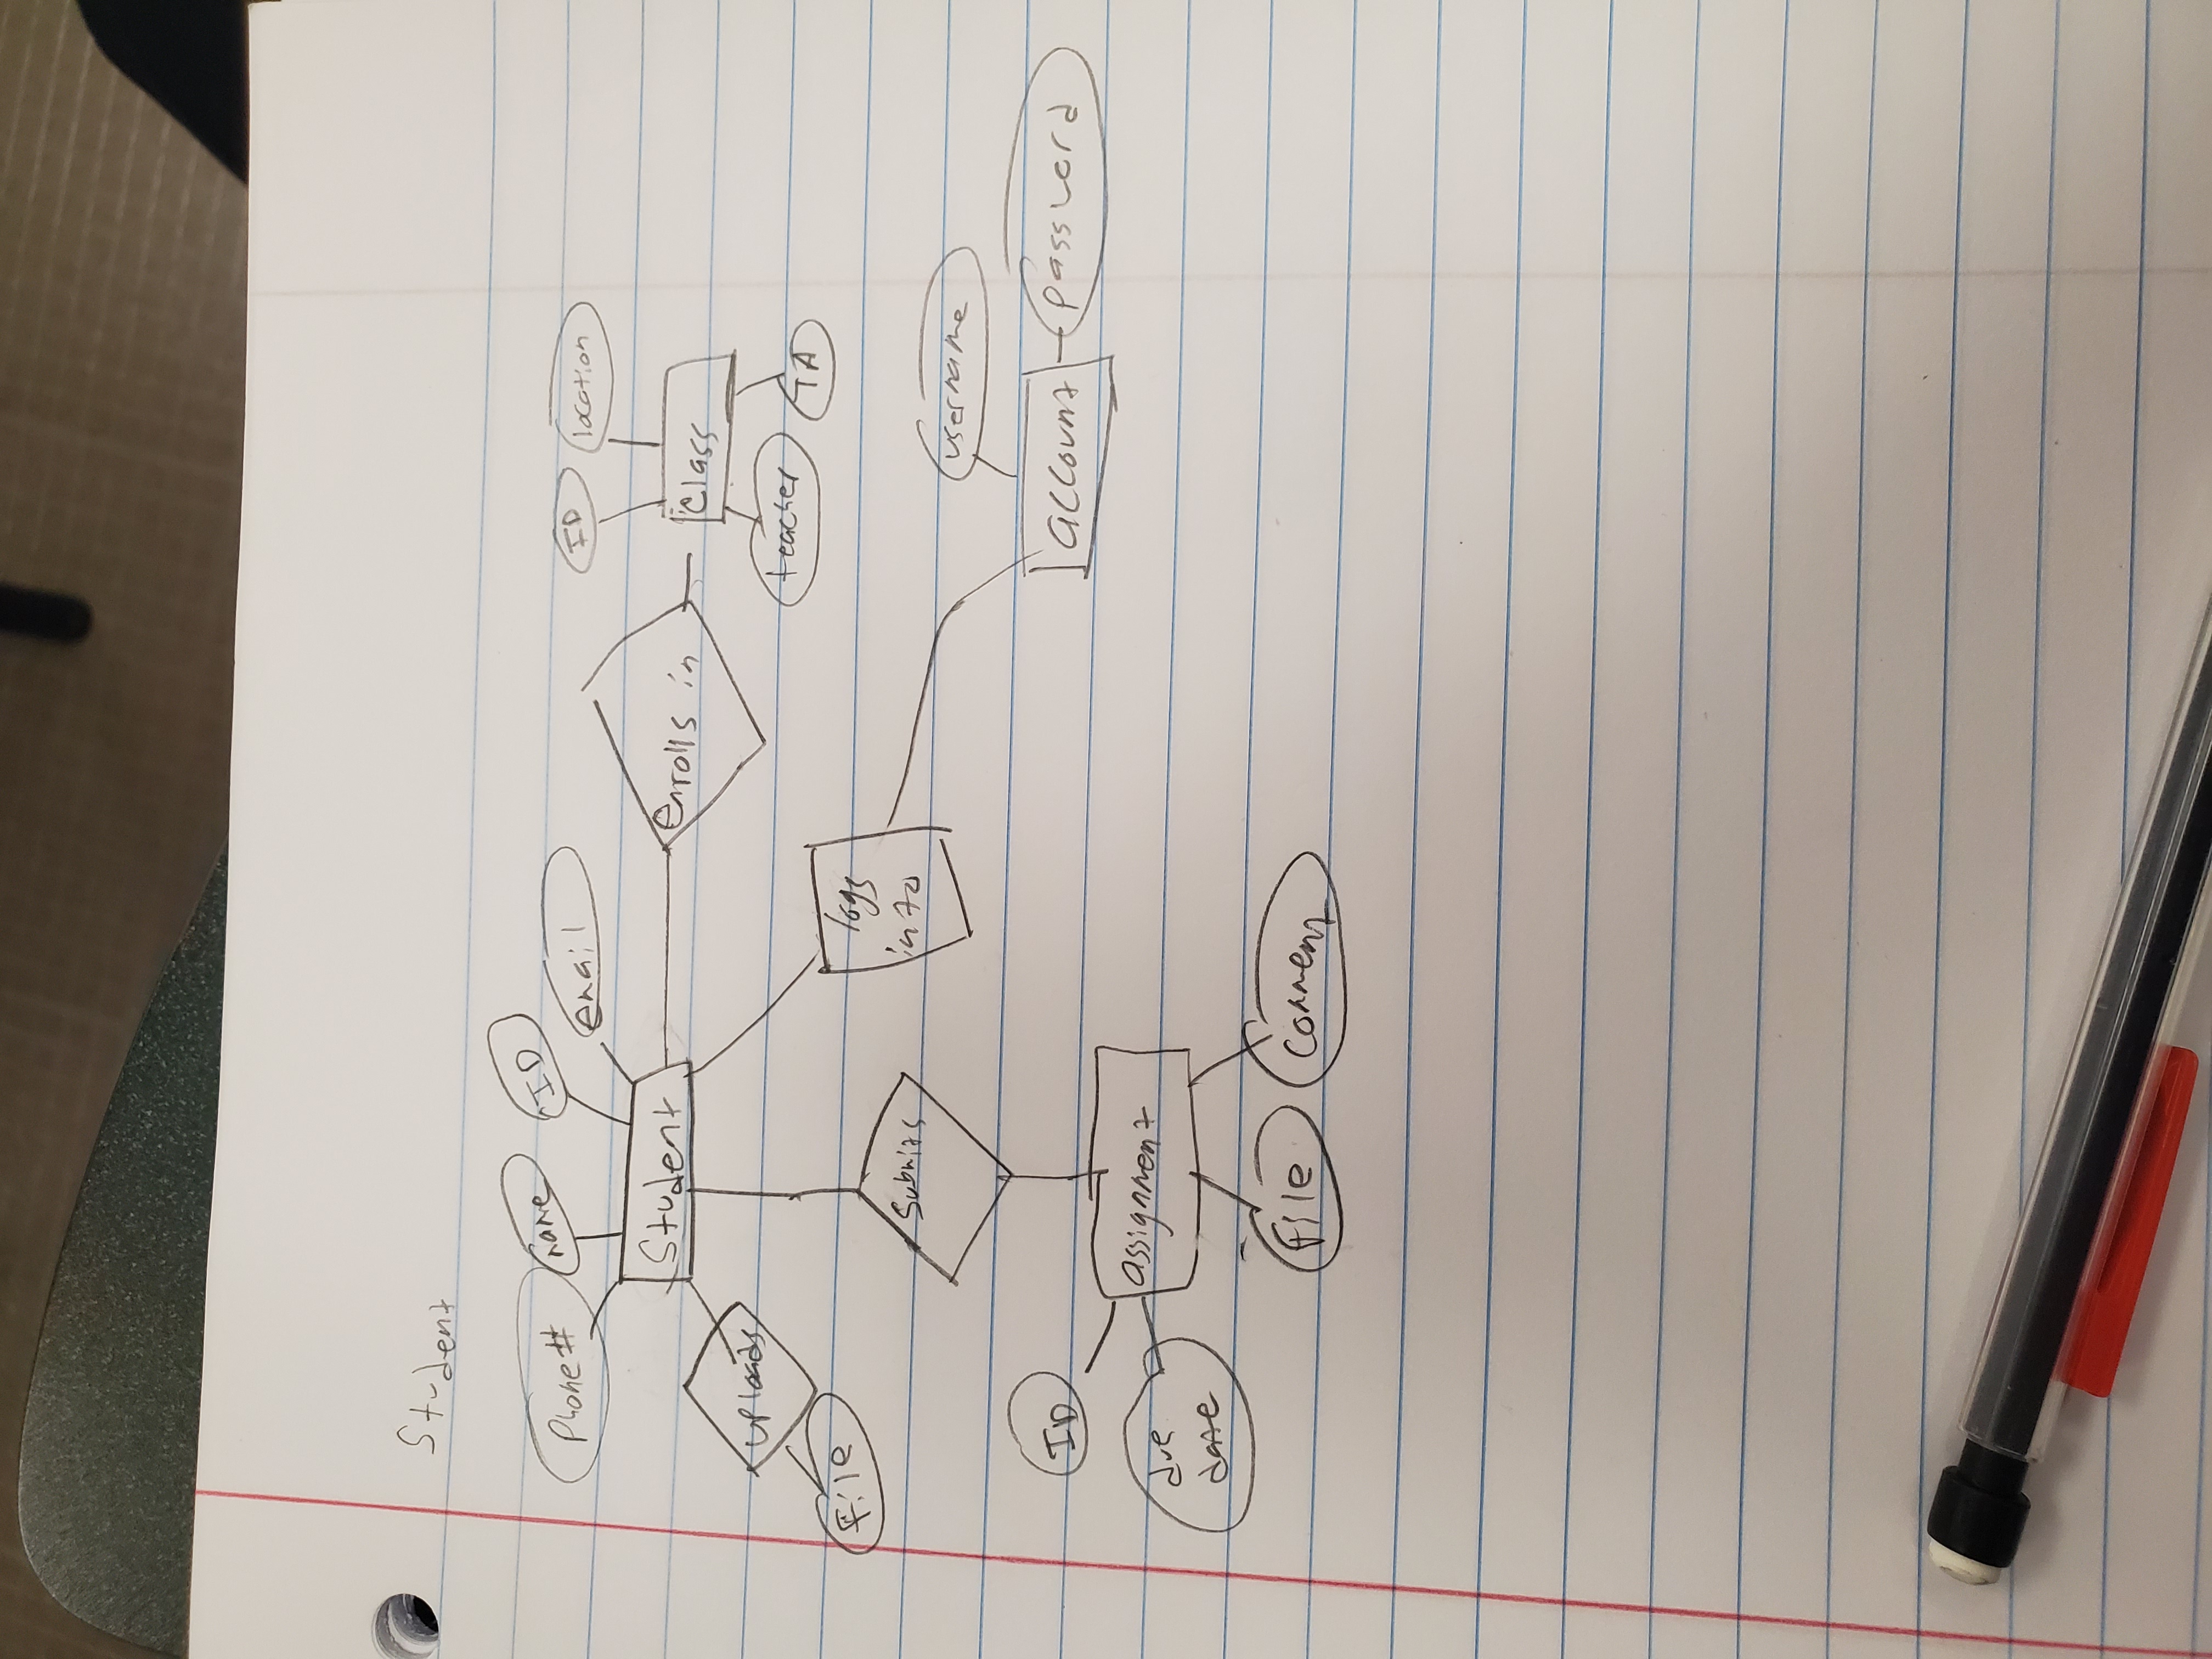 Student
Phone#
name
ID
email
Student
enrolls in
ID
location
Class
teacher
TA
uploads
file
submits
logs
into
username
account
password
ID
assignment
due
date
file
comment